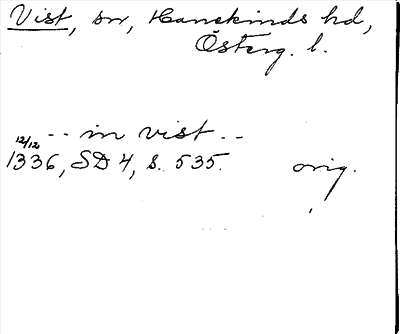 Vist, sn, Hanekinds hd,
Österg. l.
12/12 -- in vist --
1336, SD 4, s. 535. orig.